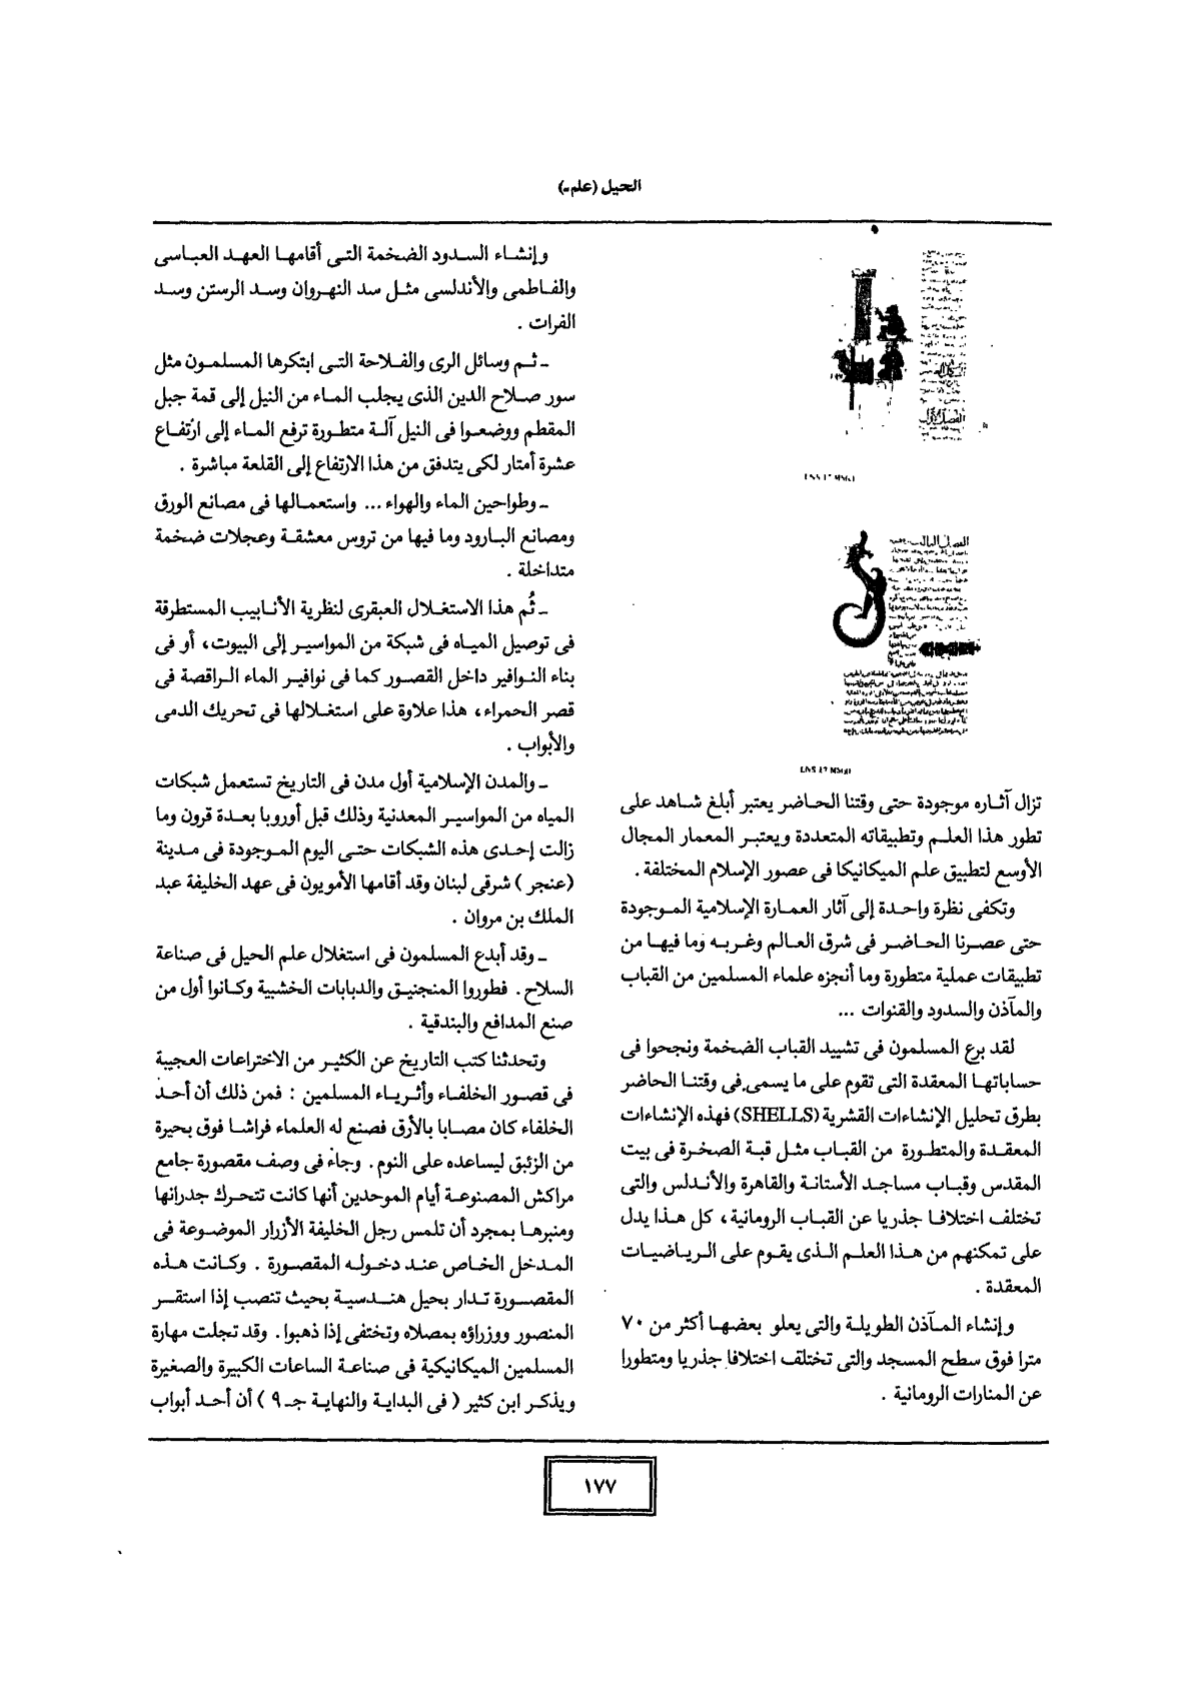 الحيل (علم ـ)
الفصل الثالث
تزال آثاره موجودة حتى وقتنا الحاضر يعتبر أبلغ شاهد على
تطور هذا العلم وتطبيقاته المتعددة ويعتبر المعمار المجال
الأوسع لتطبيق علم الميكانيكا فى عصور الإسلام المختلفة .
وتكفى نظرة واحدة إلى آثار العمارة الإسلامية الموجودة
حتى عصرنا الحاضر فى شرق العالم وغربه وما فيها من
تطبيقات عملية متطورة وما أنجزه علماء المسلمين من القباب
والمآذن والسدود والقنوات ...
لقد برع المسلمون فى تشييد القباب الضخمة ونجحوا فى
حساباتها المعقدة التى تقوم على ما يسمى فى وقتنا الحاضر
بطرق تحليل الإنشاءات القشرية (SHELLS) فهذه الإنشاءات
المعقدة والمتطورة من القباب مثل قبة الصخرة فى بيت
المقدس وقباب مساجد الأستانة والقاهرة والأندلس والتى
تختلف اختلافا جذريا عن القباب الرومانية، كل هذا يدل
على تمكنهم من هذا العلم الذى يقوم على الرياضيات
المعقدة .
وإنشاء المآذن الطويلة والتى يعلو بعضها أكثر من ٧٠
مترا فوق سطح المسجد والتى تختلف اختلافا جذريا ومتطورا
عن المنارات الرومانية .
وإنشاء السدود الضخمة التى أقامها العهد العباسى
والفاطمى والأندلسى مثل سد النهروان وسد الرستن وسد
الفرات .
ـ ثم وسائل الرى والفلاحة التى ابتكرها المسلمون مثل
سور صلاح الدين الذى يجلب الماء من النيل إلى قمة جبل
المقطم ووضعوا فى النيل آلة متطورة ترفع الماء إلى ارتفاع
عشرة أمتار لكى يتدفق من هذا الارتفاع إلى القلعة مباشرة .
ـ وطواحين الماء والهواء ... واستعمالها فى مصانع الورق
ومصانع البارود وما فيها من تروس معشقة وعجلات ضخمة
متداخلة .
ـ ثُم هذا الاستغلال العبقرى لنظرية الأنابيب المستطرقة
فى توصيل المياه فى شبكة من المواسير إلى البيوت، أو فى
بناء النوافير داخل القصور كما فى نوافير الماء الراقصة فى
قصر الحمراء، هذا علاوة على استغلالها فى تحريك الدمى
والأبواب .
ـ والمدن الإسلامية أول مدن فى التاريخ تستعمل شبكات
المياه من المواسير المعدنية وذلك قبل أوروبا بعدة قرون وما
زالت إحدى هذه الشبكات حتى اليوم الموجودة فى مدينة
(عنجر) شرقى لبنان وقد أقامها الأمويون فى عهد الخليفة عبد
الملك بن مروان .
ـ وقد أبدع المسلمون فى استغلال علم الحيل فى صناعة
السلاح . فطوروا المنجنيق والدبابات الخشبية وكانوا أول من
صنع المدافع والبندقية .
وتحدثنا كتب التاريخ عن الكثير من الاختراعات العجيبة
فى قصور الخلفاء وأثرياء المسلمين : فمن ذلك أن أحد
الخلفاء كان مصابا بالأرق فصنع له العلماء فراشا فوق بحيرة
من الزئبق ليساعده على النوم . وجاء فى وصف مقصورة جامع
مراكش المصنوعة أيام الموحدين أنها كانت تتحرك جدرانها
ومنبرها بمجرد أن تلمس رجل الخليفة الأزرار الموضوعة فى
المدخل الخاص عند دخوله المقصورة . وكانت هذه
المقصورة تدار بحيل هندسية بحيث تنصب إذا استقر
المنصور ووزراؤه بمصلاه وتختفى إذا ذهبوا . وقد تجلت مهارة
المسلمين الميكانيكية فى صناعة الساعات الكبيرة والصغيرة
ويذكر ابن كثير ( فى البداية والنهاية جـ ٩ ) أن أحد أبواب
١٧٧